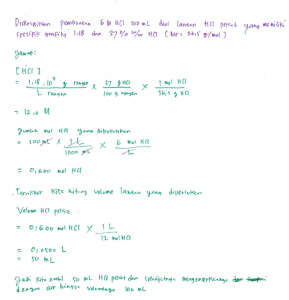 Diskripsikan pembuatan 6 M HCl 100 mL dari larutan HCl pekat yang memiliki
spesifik grafity 1,18 dan 37 % w/w HCl ( Mr = 36,5 g/mol )
Jawab:
[HCl]
= 1,18 . 10³ g reagen / L reagen × 37 g HCl / 100 g reagen × 1 mol HCl / 36,5 g HCl
= 12,0 M
Jumlah mol HCl yang dibutuhkan
= 100 mL × 1 L / 1000 mL × 6 mol HCl / L
= 0,600 mol HCl
Terakhir kita hitung volume larutan yang diperlukan
Volume HCl pekat
= 0,600 mol HCl × 1 L / 12 mol HCl
= 0,0500 L
= 50 mL
Jadi kita ambil 50 mL HCl pekat dan selanjutnya mengencerkannya
dengan air hingga volumenya 100 mL